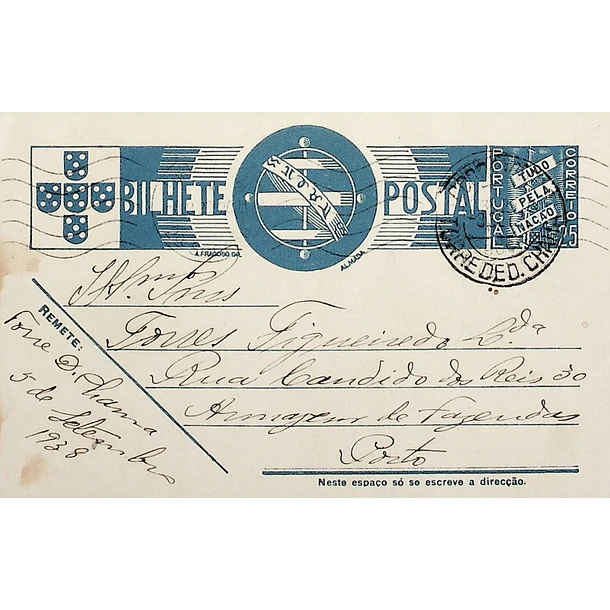 BILHETE POSTAL
PORTUGAL
CORREIO
TUDO
PELA
NAÇÃO
25
TORRE DE D. CHAMA
A. FRAGOSO GR.
ALMADA
REMETE:
Torre D. Chama
5 de Setembro
1938
Illmos Snrs
Torres Figueiredo Lda
Rua Candido dos Reis 30
Armazem de Fazendas
Porto
Neste espaço só se escreve a direcção.